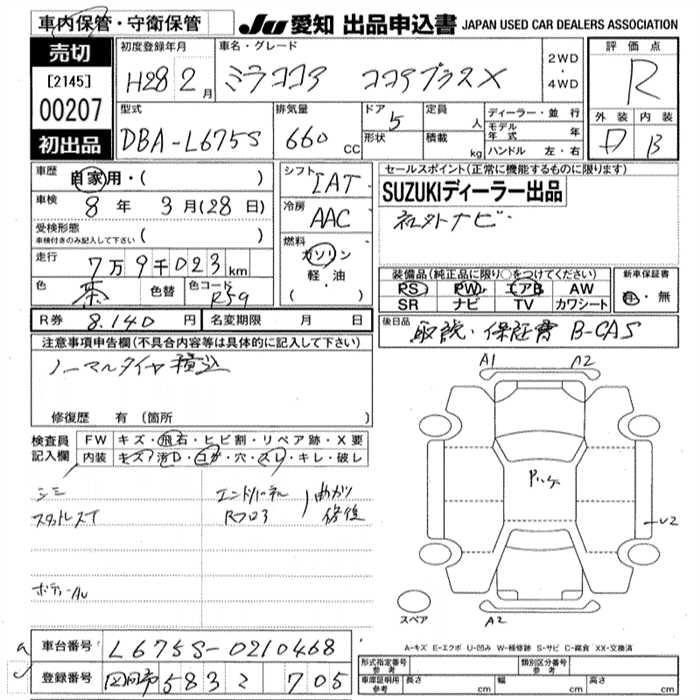 車内保管・守衛保管
JU 愛知 出品申込書 JAPAN USED CAR DEALERS ASSOCIATION
売切
[2145]
00207
初出品
初度登録年月
H28 2月
車名・グレード
ミラココア ココアプラスX
2WD
・
4WD
評価点
R
型式
DBA-L675S
排気量
660 CC
ドア 5
形状
定員 人
積載 kg
ディーラー・並行
モデル年式 年
ハンドル 左・右
外装 内装
D B
車歴 自家用・( )
車検 8年 3月(28日)
受検形態
車検付きのみ記入して下さい ( )
走行 7万9千023km
色 茶 色替 色コード R59
シフト IAT
冷房 AAC
燃料
ガソリン
軽・油
( )
セールスポイント(正常に機能するものに限ります)
SUZUKIディーラー出品
社外ナビ
装備品(純正品に限り○をつけてください)
PS PW エアB AW
SR ナビ TV カワシート
新車保証書
有・無
R券 8.140円 名変期限 月 日
後日品 取説・保証書 B-CAS
注意事項申告欄(不具合内容等は具体的に記入して下さい)
ノーマルタイヤ積込
修復歴 有(箇所
検査員
記入欄
FW キズ・飛石・ヒビ割・リペア跡・X要
内装 キズ・汚D・コゲ・穴・スレ・キレ・破レ
シミ
スタットレスT
エンドパネル
Rフロア
曲がり
修復
ボディーAU
A1 A2
U2
A2
スペア
A-キズ E-エクボ U-凹み W-補修跡 S-サビ C-腐食 XX-交換済
車台番号 L675S-0210468
登録番号 583 705
形式指定番号
参考
類別区分番号
参考
車庫証明用
参考
長さ cm 幅 cm 高さ cm